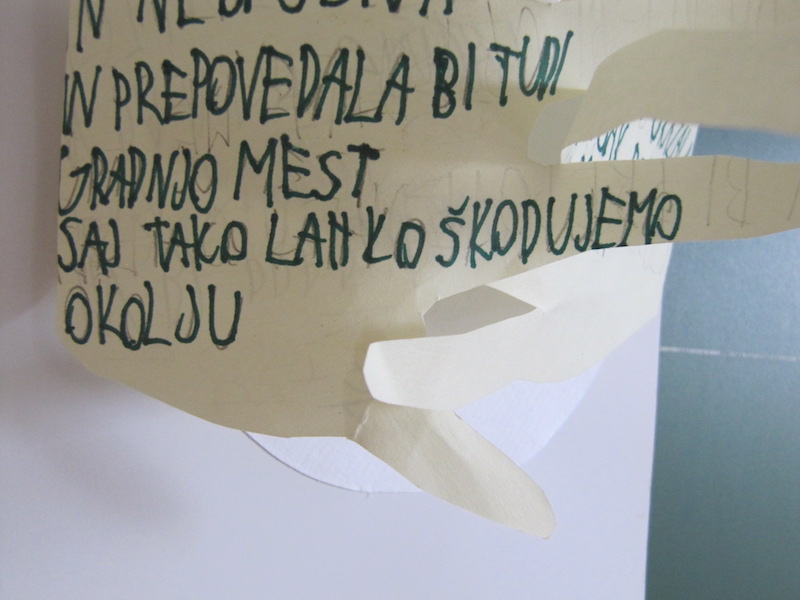 IN PREPOVEDALA BI TUDI
GRADNJO MEST
SAJ TAKO LAHKO ŠKODUJEMO
OKOLJU